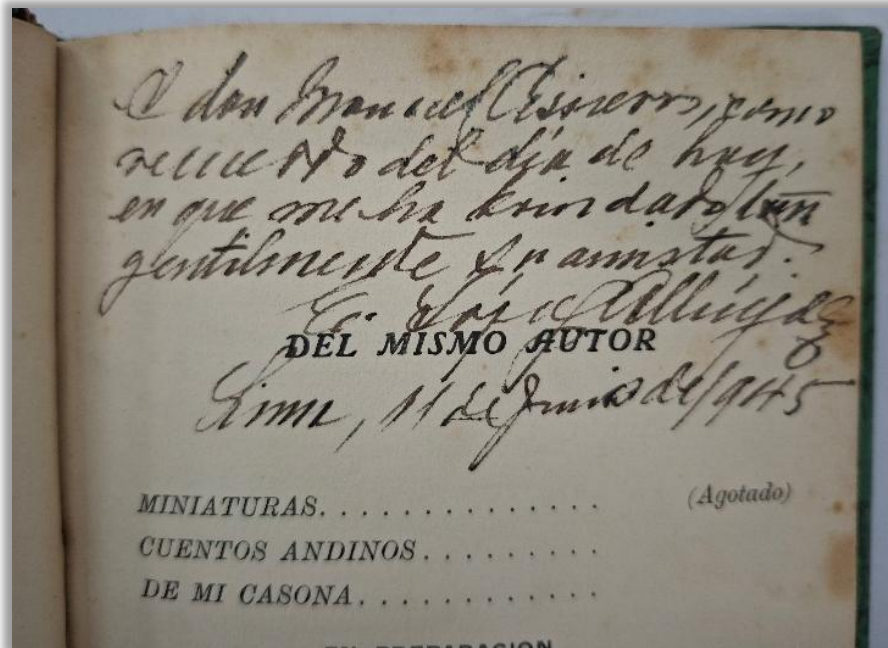 A don Manuel Cisneros, como
recuerdo del día de hoy,
en que me ha brindado tan
gentilmente su amistad.
E. López Albújar
DEL MISMO AUTOR
Lima, 11 de Junio de 1945
MINIATURAS. . . . . . . . . . . . . . . (Agotado)
CUENTOS ANDINOS . . . . . . . . .
DE MI CASONA. . . . . . . . . . . . .
EN PREPARACION